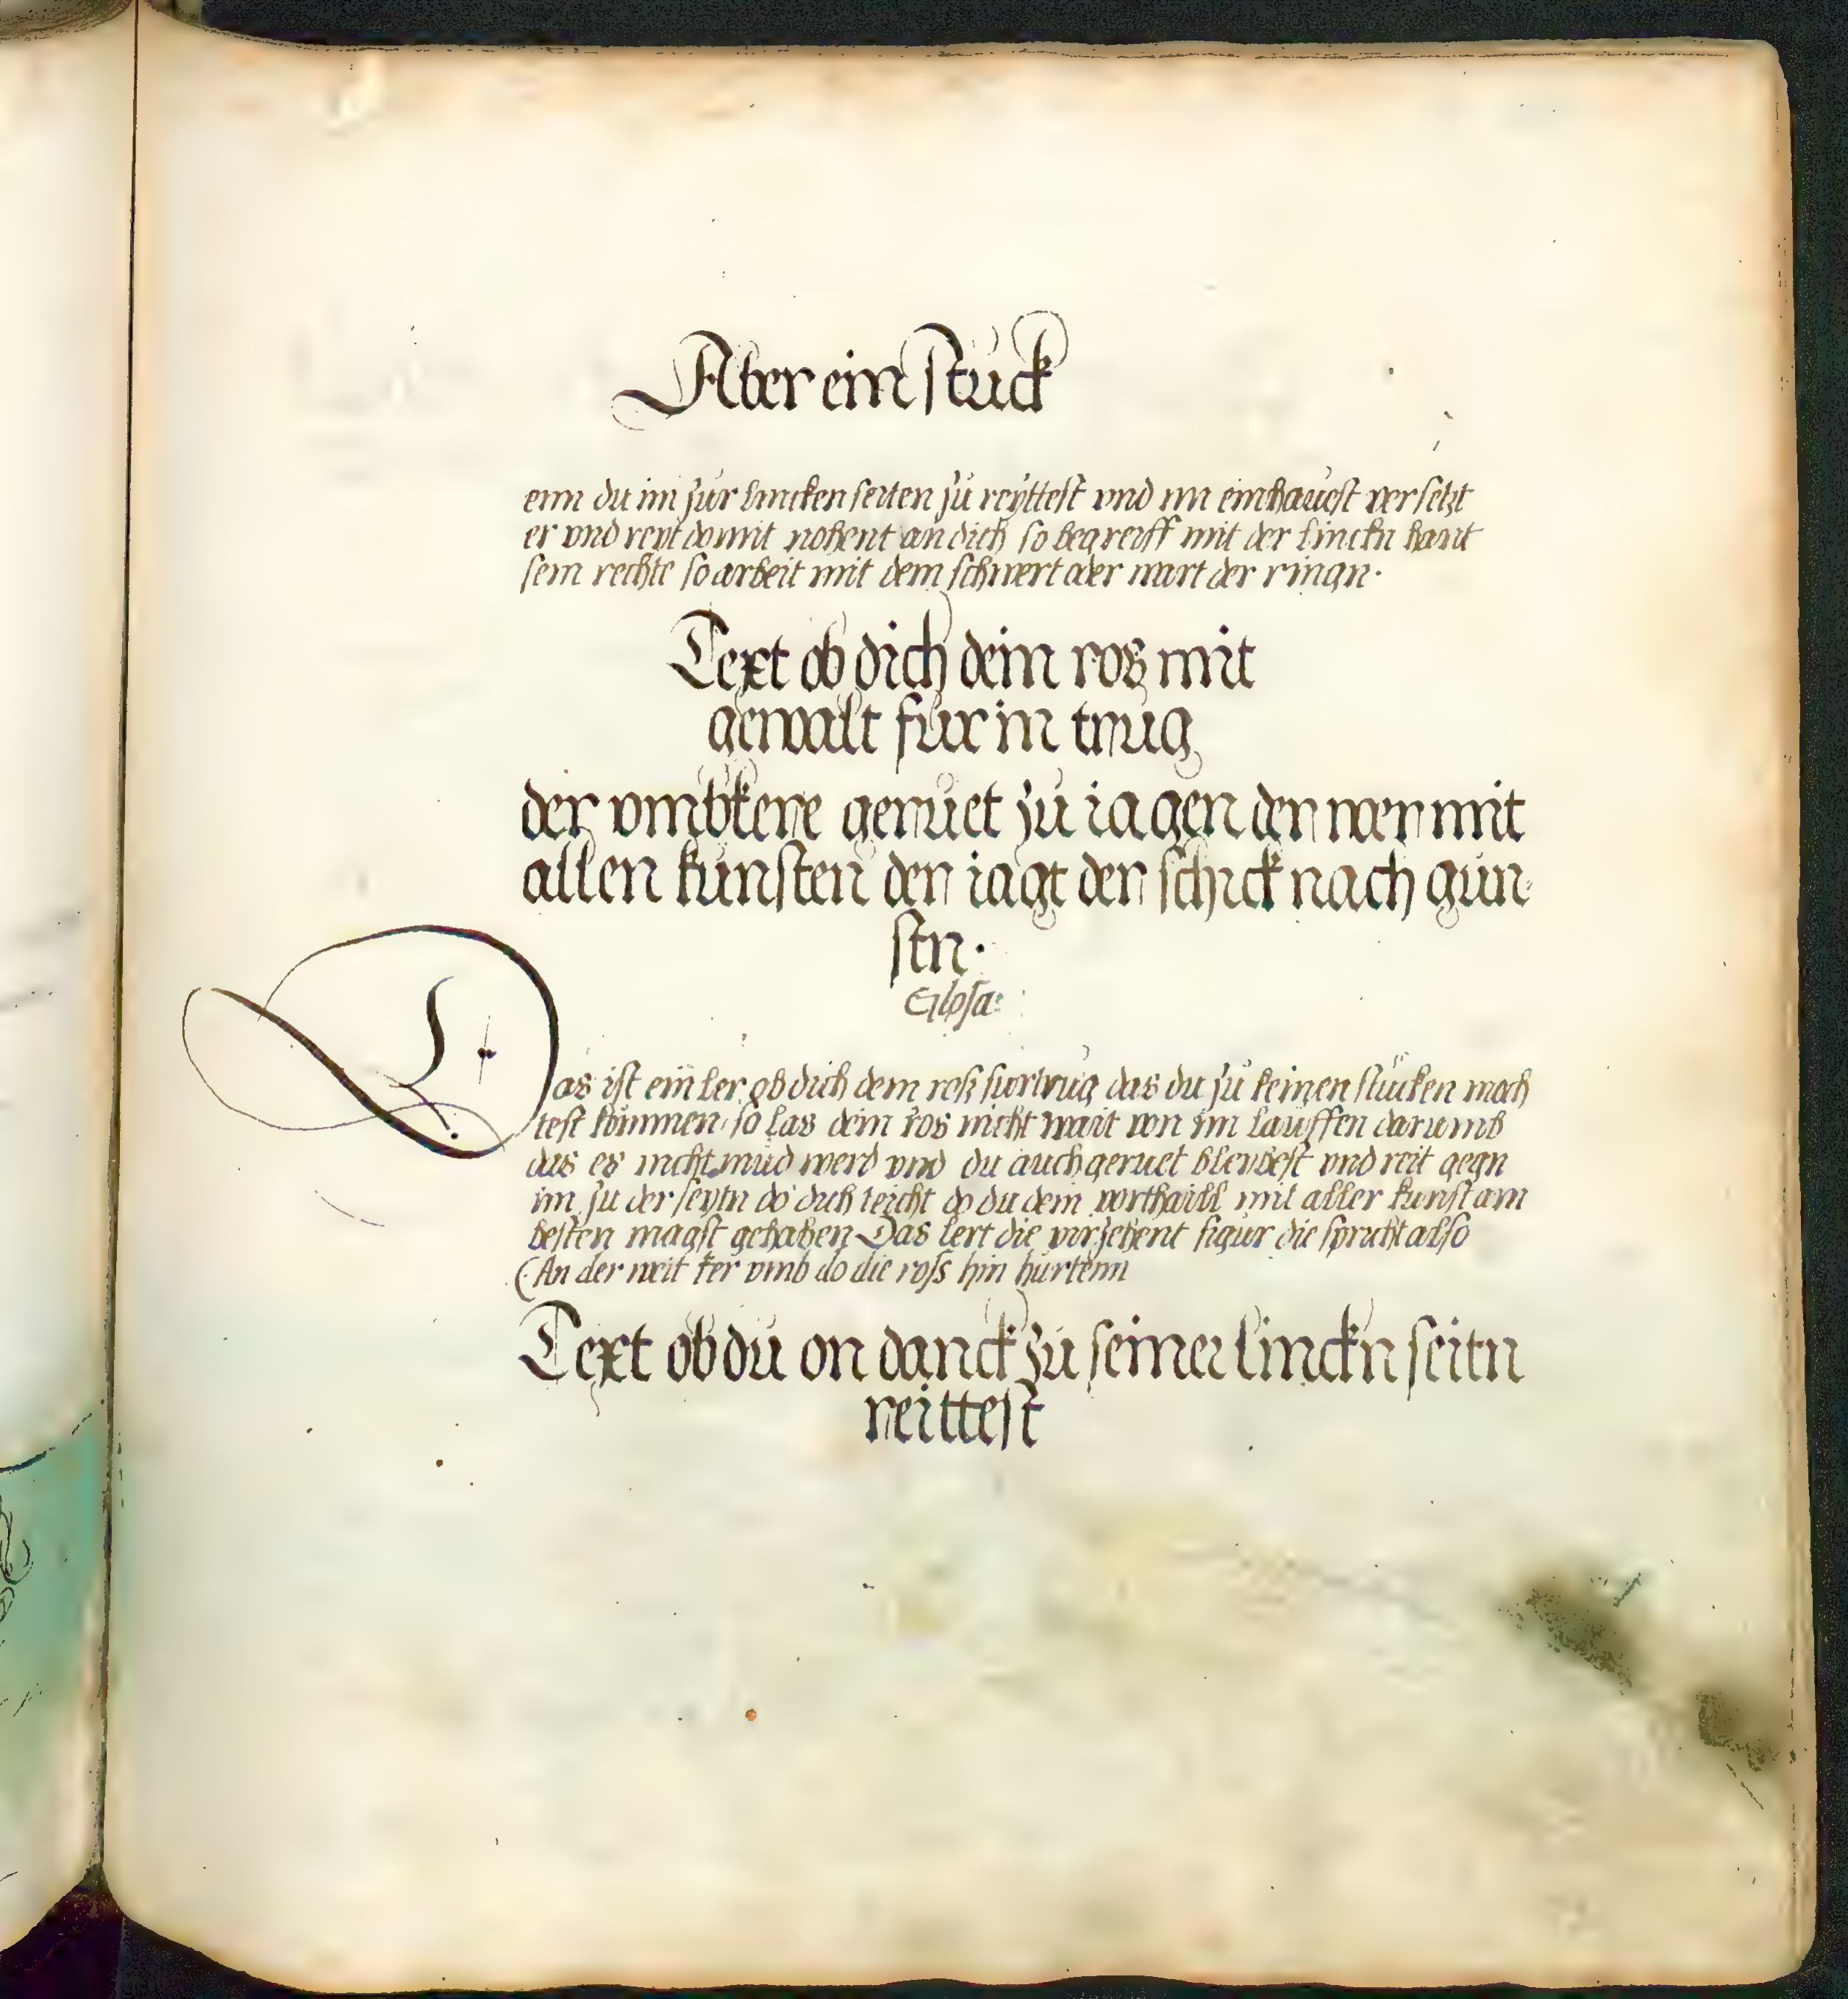 Aber ein stuck
enn du im zur lincken seiten zu reyttest vnd im einhauest versetzt
er vnd reyt domit nohent an dich so begreiff mit der linckn hant
sein rechte so arbeit mit dem schwert ader wart der ringn.
Text ob dich dein ros mit
gewalt fur in trug
der vmbkere geruet zu iagen der wer mit
allen kunsten der iagt der schick nach gun
stn.
Glosa:
Das ist ein ler ob dich dein ross furtrug das du zu keinen stucken moch
test kummen so las dein ros nicht wait von im lauffen darumb
das es nicht mud werd vnd du auch geruet bleybest vnd reit gegn
im zu der seytn do dich leicht do du dein vorthaill mit aller kunst am
besten magst gehaben Das lert die virzehent figur die spricht also
(An der weit ker vmb do die ross hin hurtenn
Text ob du on danck zu seiner linckn seitn
reittest